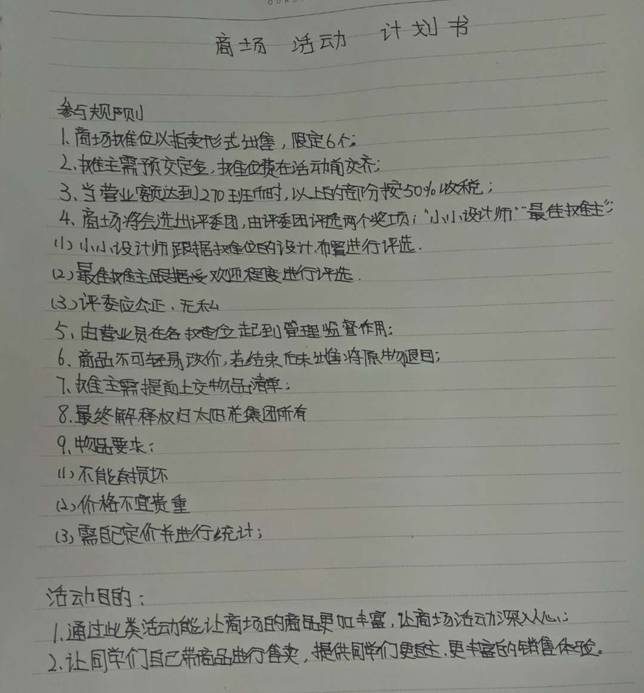 商场 活动 计划书
参与规则
1、商场摊位以拍卖形式出售，限定6个；
2、摊主需预交定金，摊位费在活动前交齐；
3、当营业额达到270班币时，以上的部分按50%收税；
4、商场将会选出评委团，由评委团评选两个奖项；"小小设计师""最佳摊主"；
(1)小小设计师跟据摊位的设计、布置进行评选.
(2)最佳摊主跟据受欢迎程度进行评选.
(3)评委应公正、无私
5、由营业员在各摊位起到管理监督作用；
6、商品不可轻易改价，若结束后未出售将原物退回；
7、摊主需提前上交物品清单；
8、最终解释权归太阳花集团所有
9、物品要求：
(1)不能有损坏
(2)价格不宜贵重
(3)需自己定价并进行统计；
活动目的：
1、通过此类活动能让商场的商品更加丰富，让商场活动深入人心；
2、让同学们自己带商品进行售卖，提供同学们更自主、更丰富的销售体验。